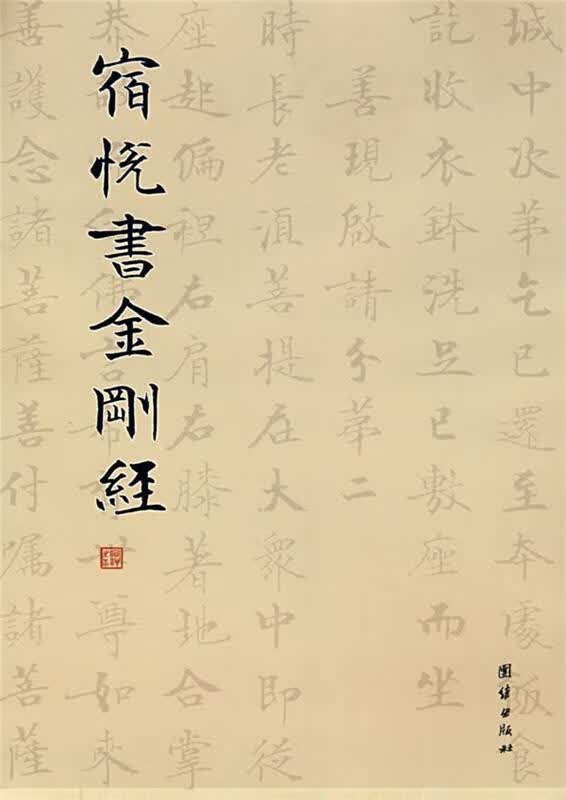 宿悦書金剛經
團結出版社
城中次苐乞已還至本處飯食
訖收衣鉢洗足已敷座而坐
善現啟請分苐二
時長老湏菩提在大衆中即從
座起偏袒右肩右膝著地合掌
恭佛言希有世尊如来
善護念諸菩薩善付囑諸菩薩